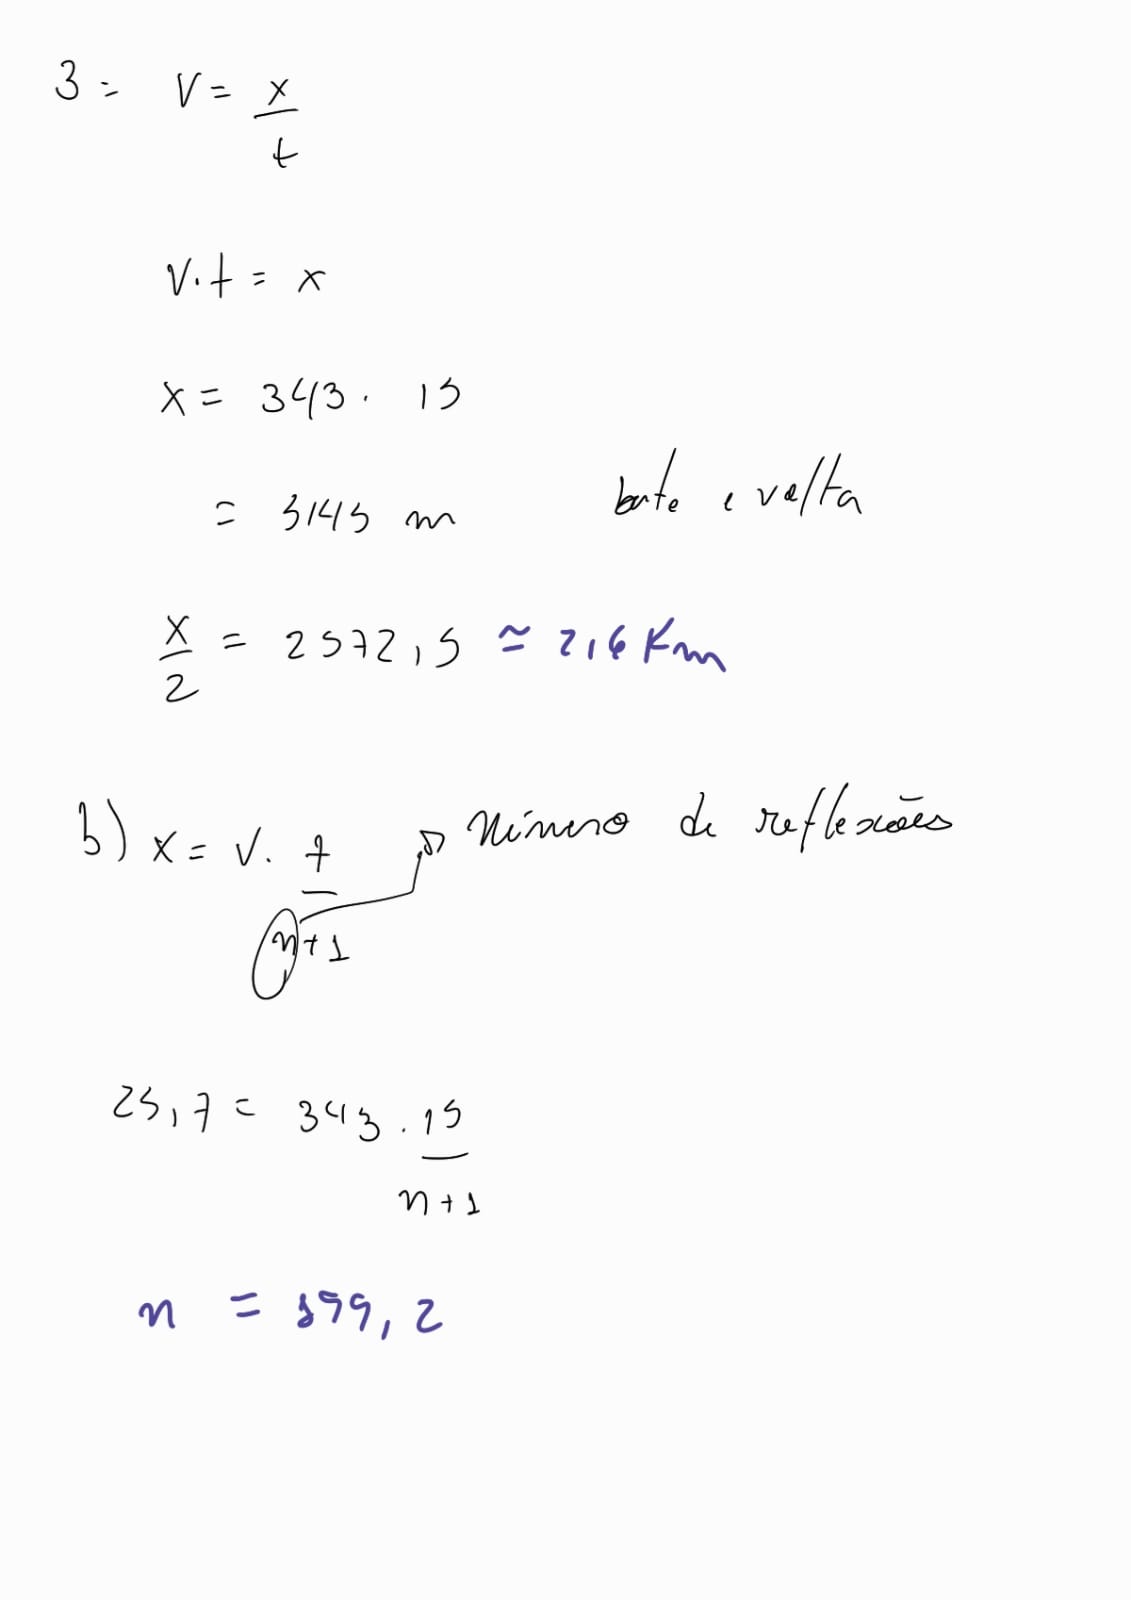 3 = V = x
t
V.t = x
x = 343 . 15
= 5145 m bate e volta
x/2 = 2572,5 ≈ 2,6 Km
b) x = V. t Número de reflexões
n+1
25,7 = 343 . 15
n+1
n = 199,2